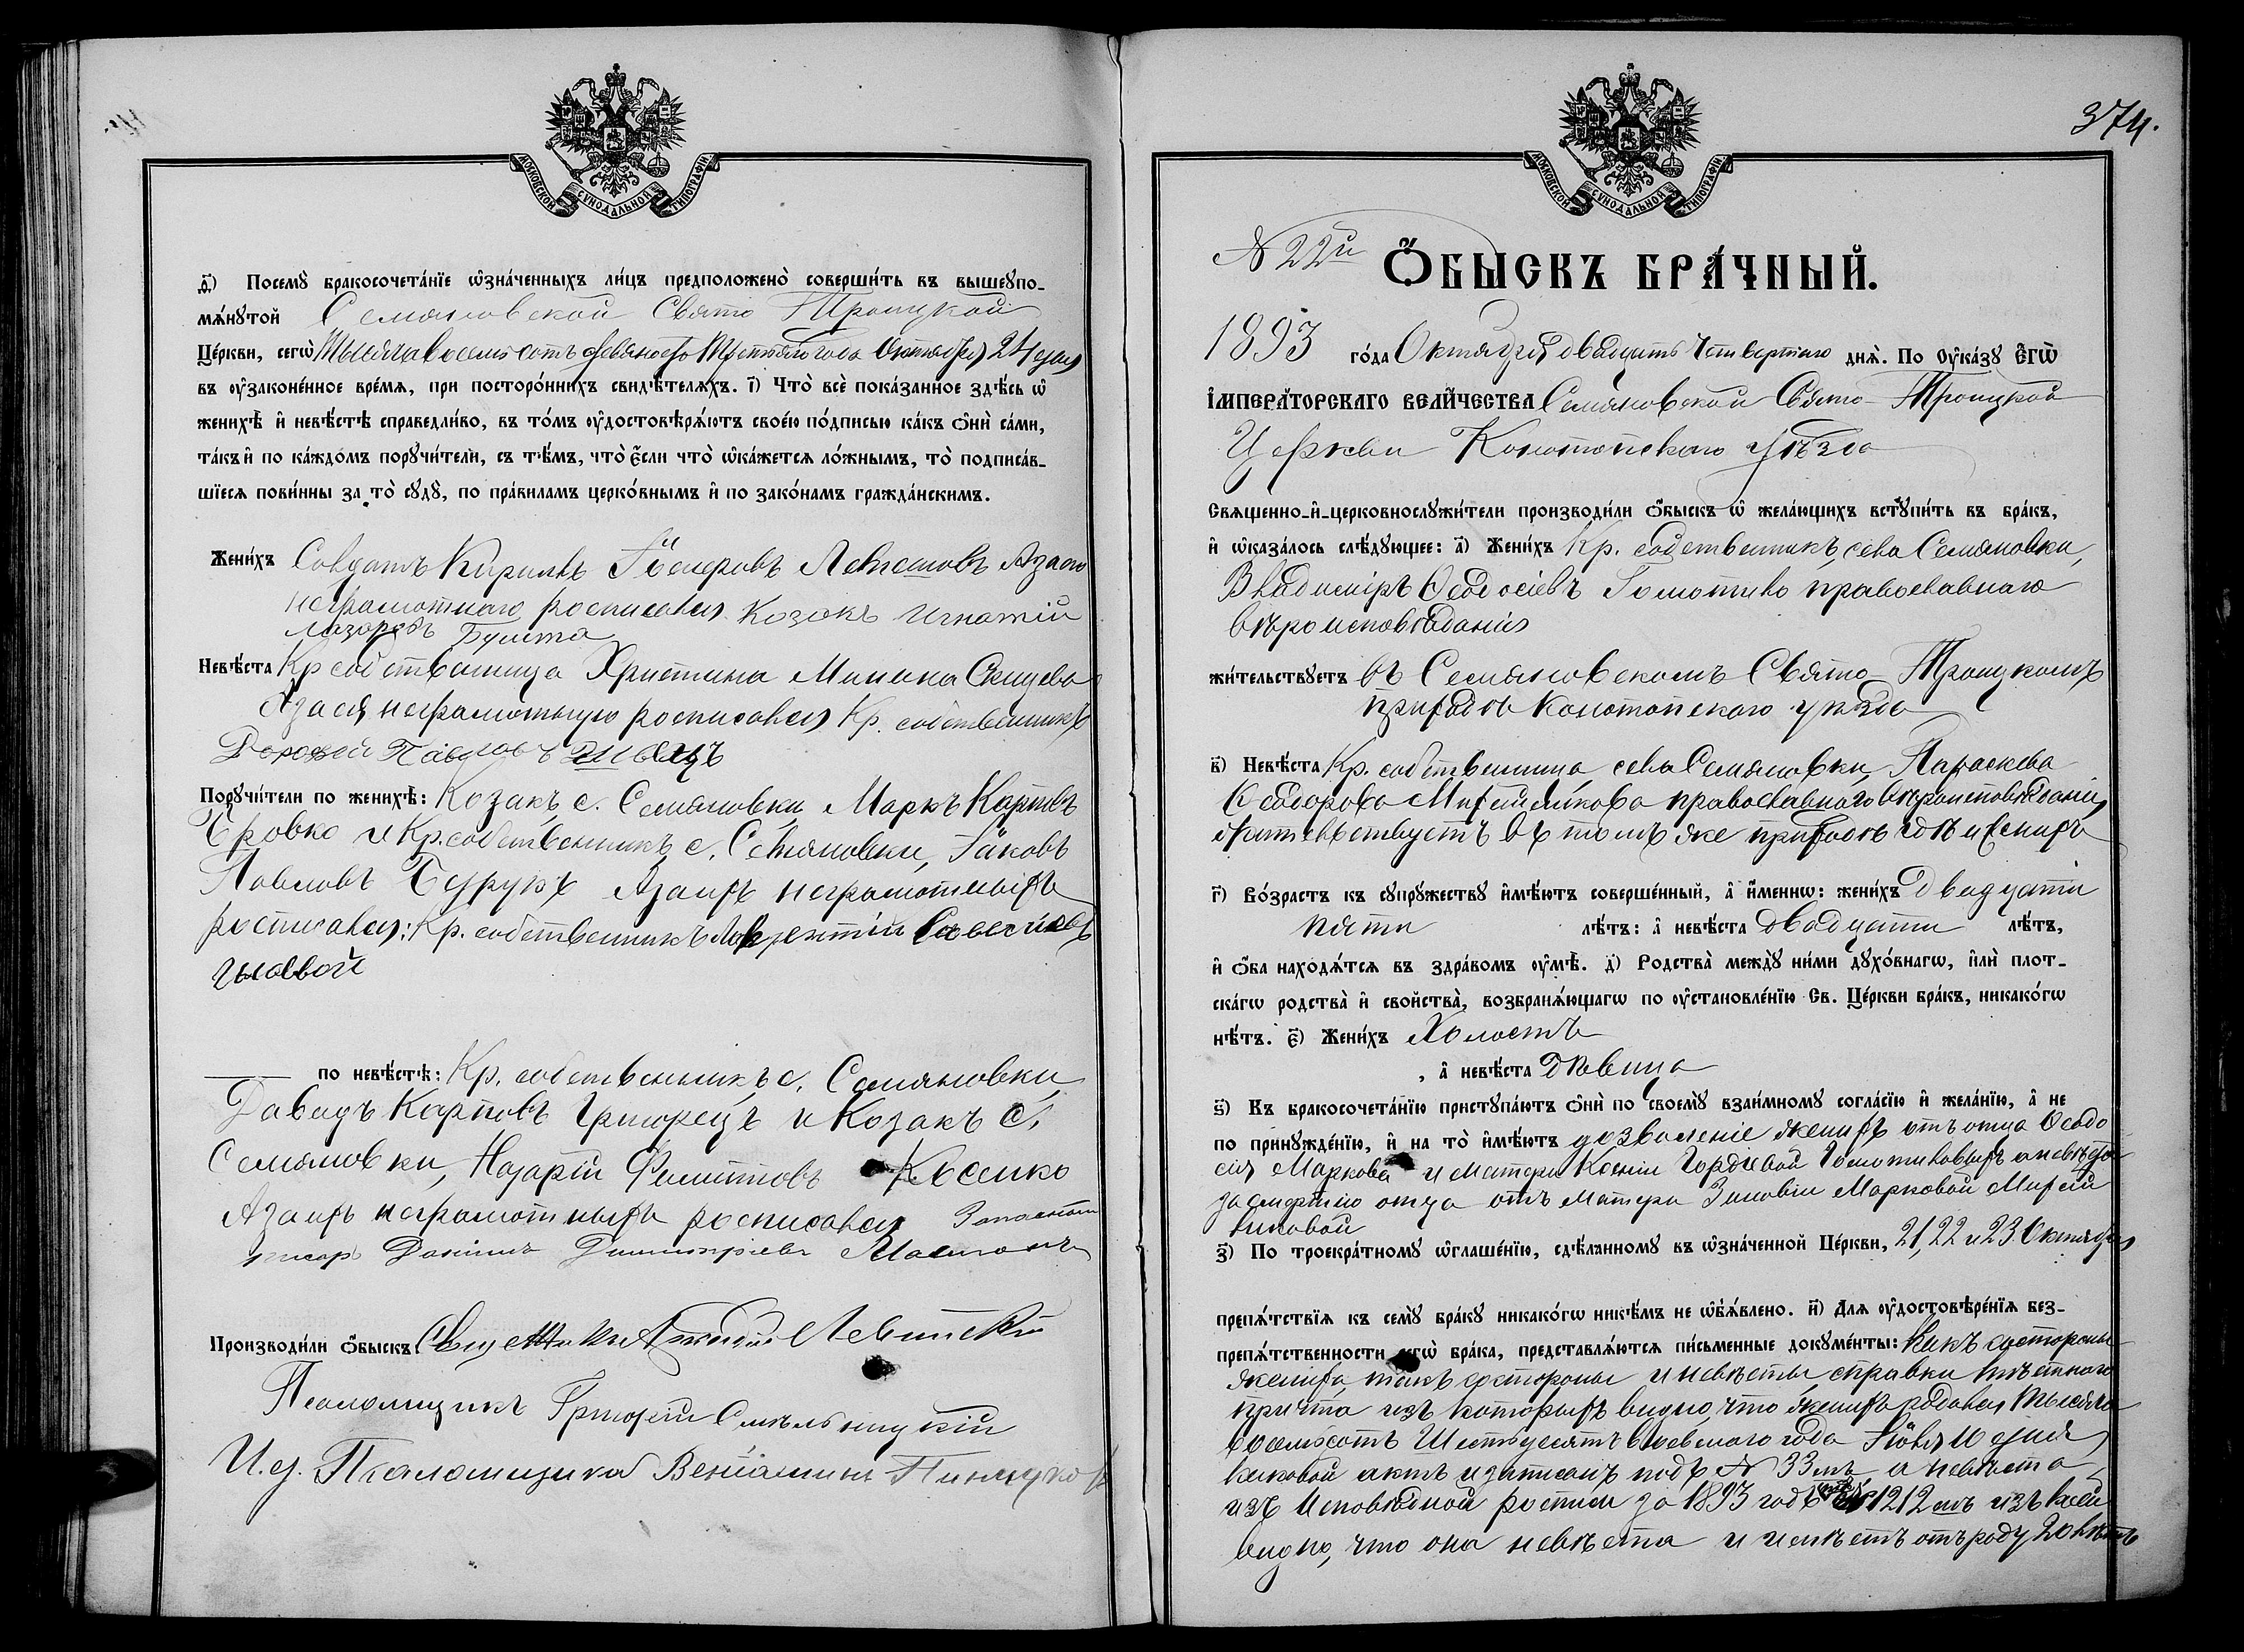 МОСКОВСКОЙ СѴНОДАЛЬНОЙ ТИПОГРАФІИ
ѳ҃) Посемꙋ̀ бракосочета́нїе ѡ҆зна́ченныхъ ли́цъ предположено̀ соверши́ть въ вышеꙋпо-
мѧ́нꙋтой Семяновской Свято Троицкой
Це́ркви, сегѡ̀ Тысяча восемь сотъ девяносто Третьяго года Октября 24 дня
въ ᲂу҆законе́нное вре́мѧ, при посторо́ннихъ свидѣ́телѧхъ. і҃) Что̀ всѐ пока́занное здѣ́сь ѡ҆
женихѣ̀ и҆ невѣ́стѣ справедли́во, въ то́мъ ᲂу҆достовѣрѧ́ютъ свое́ю по́дписью ка́къ ѻ҆нѝ са́ми,
та́къ и҆ по ка́ждомъ порꙋчи́тели, съ тѣ́мъ, что̀ є҆́сли что̀ ѡ҆ка́жетсѧ ло́жнымъ, то̀ подписа́в-
шїесѧ пови́нны за то̀ сꙋдꙋ̀, по пра́виламъ церко́внымъ и҆ по зако́намъ гражда́нскимъ.
Жени́хъ Солдатъ Кирилъ Азаого
неграмотнаго росписался Козакъ Игнатій
Лазоревъ
Невѣ́ста Кр собственица Христина Минина
Азася неграмотную росписался Кр. собственникъ
Павловъ Швецъ
Порꙋчи́тели по женихѣ̀: Козакъ с. Семяновки Маркъ Карповъ
и Кр. собственникъ с. Семяновки, Іаковъ
Павловъ Азаихъ неграмотныхъ
росписался: Кр. собственникъ Лаврентій
по невѣ́стѣ: Кр. собственникъ с. Семяновки
Давидъ Карповъ и Козакъ с.
Семяновки, Назарій Филиповъ Косенко
Азаихъ неграмотныхъ росписался Запасный
писарь Даніилъ Димитріевъ
Производи́ли ѻ҆́быскъ: Священникъ Левитскій
Псаломщикъ Григорій Смѣльницкій
И. д. Псаломщика Веніаминъ
374.
МОСКОВСКОЙ СѴНОДАЛЬНОЙ ТИПОГРАФІИ
№ 22й
Ѻ҆́БЫСКЪ БРА́ЧНЫЙ.
1893 го́да Октября двадцать четвертаго днѧ̀. По Ѹ҆ка́зꙋ Є҆гѡ̀
І҆мпера́торскагѡ вели́чества Семяновской Свято-Троицкой
Церкви Конотопского уѣзда
Свѧщенно-и҆-церковнослꙋжи́тели производи́ли ѻ҆́быскъ ѡ҆ жела́ющихъ встꙋпи́ть въ бра́къ,
и҆ ѡ҆каза́лось слѣ́дꙋющее: а҃) Жени́хъ Кр. собственникъ, села Семяновки,
Владиміръ Ѳеодосіевъ Гомотико православнаго
вѣроисповѣданія
жи́тельствꙋетъ въ Семяновскомъ Свято-Троицкомъ
приходѣ Конотопскаго уѣзда
в҃) Невѣ́ста Кр. собственница села Семяновки Параскева
Ѳеодорова православнаго вѣроисповѣданія
жительствуетъ въ томъ же приходѣ гдѣ и женихъ
г҃) Во́зрастъ къ сꙋпрꙋ́жествꙋ и҆мѣ́ютъ соверше́нный, а҆ и҆́меннѡ: жени́хъ двадцати
пяти лѣ́тъ: а҆ невѣ́ста двадцати лѣ́тъ,
и҆ ѻ҆́ба нахо́дѧтсѧ въ здра́вомъ ᲂу҆мѣ̀. д҃) Родства̀ междꙋ̀ ни́ми дꙋхо́внагѡ, и҆лѝ плот-
ска́гѡ родства̀ и҆ свойства̀, возбранѧ́ющагѡ по ᲂу҆становле́нїю Св. Це́ркви бра́къ, никако́гѡ
нѣ́тъ. є҃) Жени́хъ Холостъ
, а҆ невѣ́ста Дѣвица
ѕ҃) Къ бракосочета́нїю пристꙋпа́ютъ ѻ҆нѝ по своемꙋ̀ взаи́мномꙋ согла́сїю и҆ жела́нїю, а҆ не
по принꙋжде́нїю, и҆ на то̀ и҆мѣ́ютъ дозволеніе женихъ отъ отца Ѳеодо
сія Маркова и матери Ксеніи Гордіевой Гомотиковыхъ а невѣста
за смертію отца отъ матери Зиновіи Марковой
з҃) По троекра́тномꙋ ѡ҆глаше́нїю, сдѣ́ланномꙋ въ ѡ҆зна́ченной Це́ркви, 21, 22 и 23 Октября
препѧ́тствїѧ къ семꙋ̀ бра́кꙋ никако́гѡ никѣ́мъ не ѡ҆б̾ѧ́влено. и҃) Длѧ ᲂу҆достовѣре́нїѧ без-
препѧ́тственности сегѡ̀ бра́ка, представлѧ́ютсѧ пи́сьменные докꙋме́нты: какъ состороны
жениха, такъ состороны и невѣсты справки мѣстнаго
причта изъ которыхъ видно, что женихъ родился Тысяча
восемьсотъ Шестьдесятъ восьмого года Іюля 11 дня
каковой актъ и записанъ подъ № 33мъ, а невѣста
изъ Исповѣдной росписи за 1893 годъ № 1212мъ изъ коей
видно, что она невѣста и имѣетъ отъ роду 20 лѣтъ